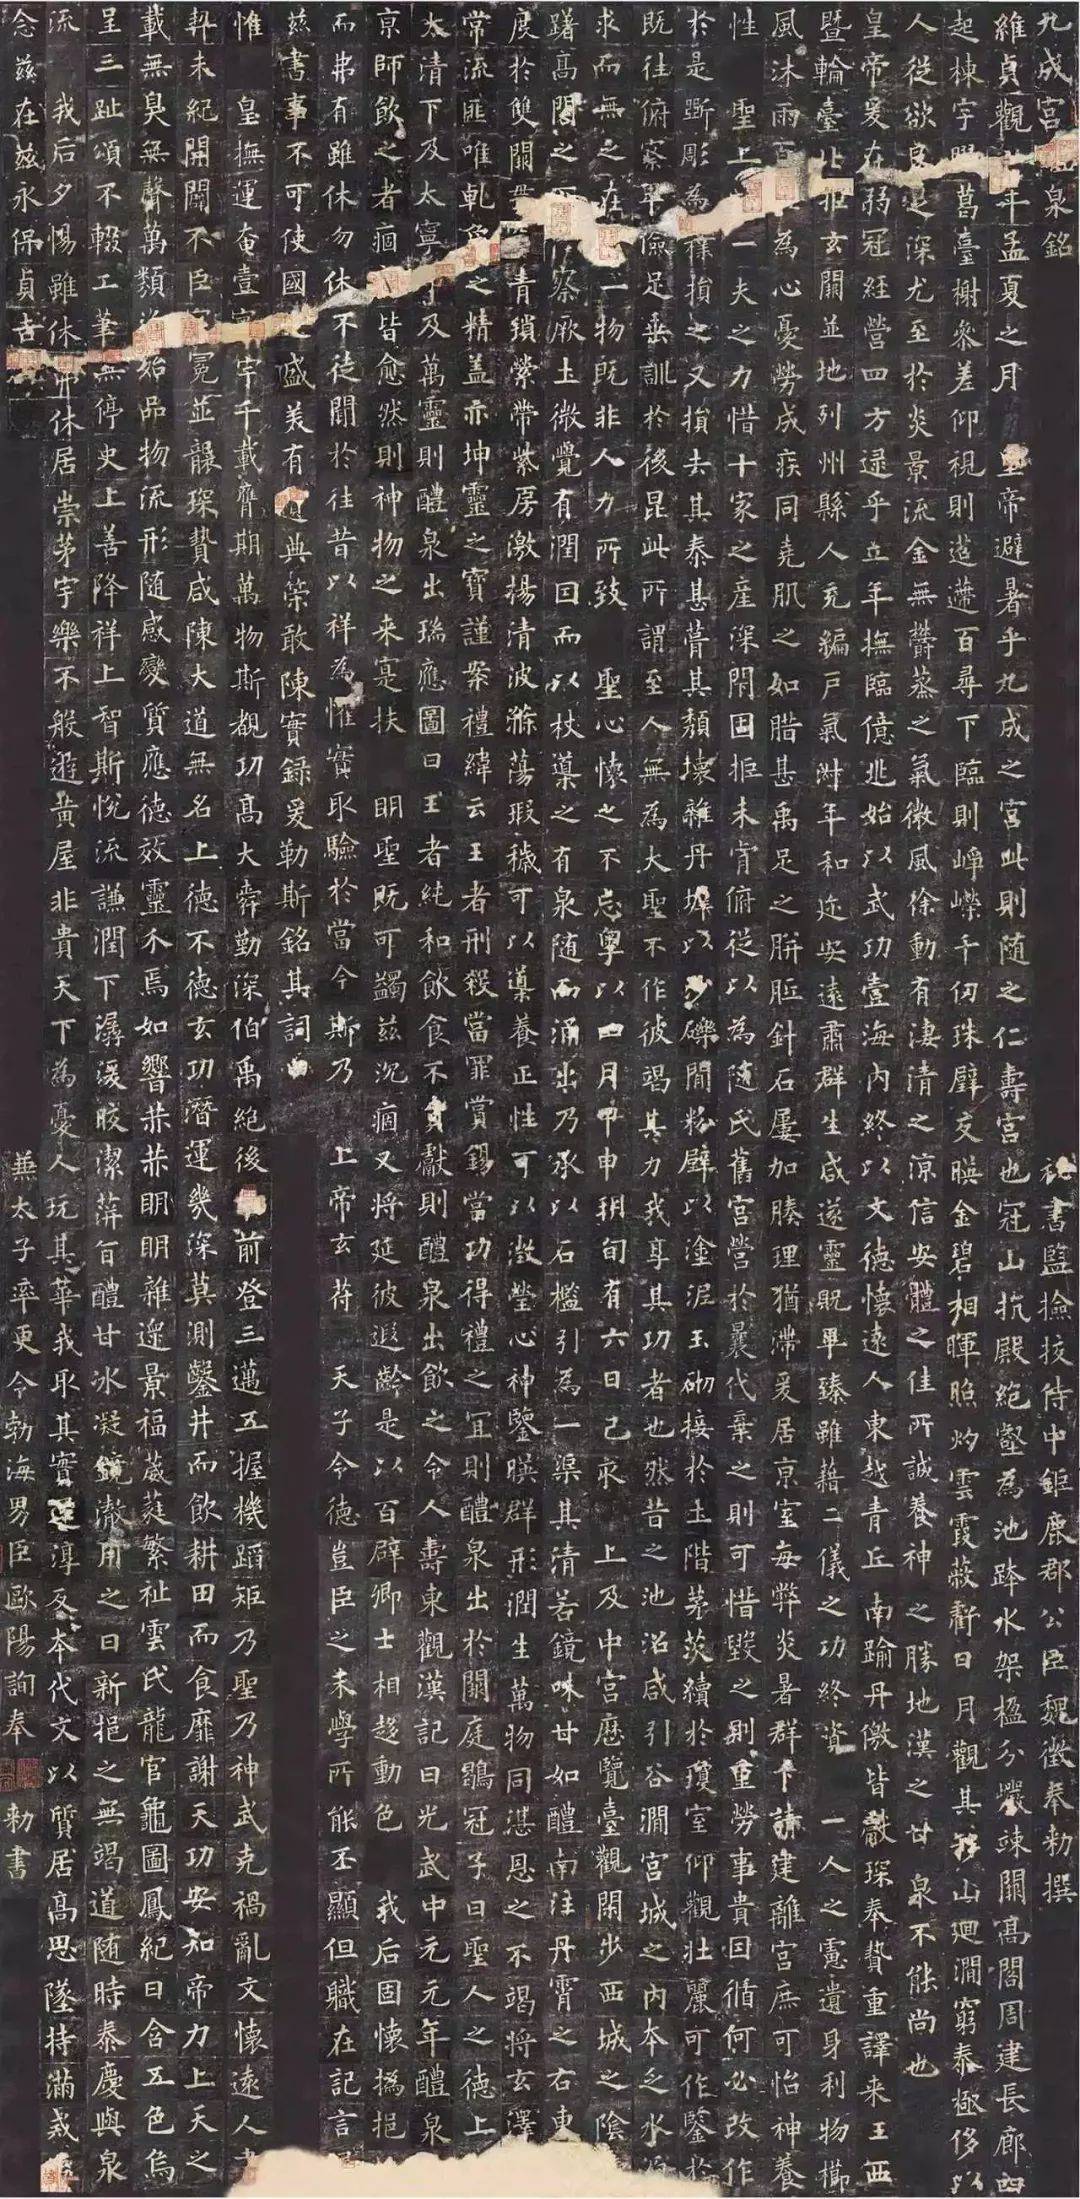 九成宮 泉銘 秘書監撿挍侍中鉅鹿郡公臣魏徵奉勅撰
維貞觀 年孟夏之月 皇帝避暑乎九成之宮此則随之仁壽宮也冠山抗殿絶壑為池跨水架楹分巖竦闕髙閣周建長廊四
起棟宇膠葛臺榭參差仰視則迢遰百尋下臨則崢嶸千仞珠璧交暎金碧相暉照灼雲霞蔽虧日月觀其移山迴澗窮泰極侈以
人從欲良 之深尤至於炎景流金無欝蒸之氣微風徐動有淒清之涼信安體之佳所誠養神之勝地漢之甘泉不能尚也
皇帝爰在弱冠經營四方逮乎立年撫臨億兆始以武功壹海内終以文德懷遠人東越青丘南踰丹徼皆獻琛奉贄重譯来王西
暨輪臺北 玄闕並地列州縣人充編戸氣淑年和迩安遠肅群生咸遂靈貺畢臻雖藉二儀之功終資 一人之慮遺身利物櫛
風沐雨百 為心憂勞成疾同堯肌之如腊甚禹足之胼胝針石屢加腠理猶滯爰居京室每弊炎暑群下請建離宮庶可怡神養
性 聖上 一夫之力惜十家之産深閇固拒未肯俯從以為随氏舊宮營於曩代棄之則可惜毀之則重勞事貴因循何必改作
於是斲彫為 損之又損去其泰甚葺其頽壞雜丹墀以沙礫間粉壁以塗泥玉砌接於土階茅茨續於瓊室仰觀壯麗可作鑒於
既往俯察卑儉足垂訓於後昆此所謂至人無為大聖不作彼竭其力我享其功者也然昔之池沼咸引谷澗宮城之内本乏水源
求而無之在 一物既非人力所致 聖心懷之不忘粤以四月甲申朔旬有六日己亥 上及中宮歴覽臺觀閑步西城之陰
躊髙閣之下 察厥土微覺有潤因而以杖導之有泉随而涌出乃承以石檻引為一渠其清若鏡味甘如醴南注丹霄之右東
度於雙闕 青瑣縈帶紫房激揚清波滌蕩瑕穢可以導養正性可以澂瑩心神鑒暎群形潤生萬物同湛恩之不竭将玄澤
常流匪唯軋象之精盖亦坤靈之寶謹案禮緯云王者刑殺當罪賞錫當功得禮之宜則醴泉出於闕庭鶡冠子曰聖人之德上
太清下及太寧 及萬靈則醴泉出瑞應圖曰王者純和飲食不貢獻則醴泉出飲之令人壽東觀漢記曰光武中元元年醴泉
京師飲之者痼 皆愈然則神物之来寔扶 明聖既可蠲兹沉痼又将延彼遐齡是以百辟卿士相趍動色 我后固懷撝挹
而弗有雖休勿休不徒聞於往昔以祥為惧實取驗於當今斯乃 上帝玄苻 天子令德豈臣之末學所能丕顯但職在記言
兹書事不可使國 盛美有遺典策敢陳實録爰勒斯銘其詞曰
惟 皇撫運奄壹 宇千載膺期萬物斯覩功髙大舜勤深伯禹絶後 前登三邁五握機蹈矩乃聖乃神武克禍亂文懷遠人
契未紀開闢不臣 冕並襲琛贄咸陳大道無名上德不德玄功潛運幾深莫測鑿井而飲耕田而食靡謝天功安知帝力上天之
載無臭無聲萬類 始品物流形随感變質應德效靈介焉如響赫赫明明雜遝景福葳蕤繁祉雲氏龍官龜圖鳳紀日含五色烏
呈三趾頌不輟工筆無停史上善降祥上智斯悅流謙潤下潺湲皎潔蓱旨醴甘冰凝鏡澈用之日新挹之無竭道随時泰慶與泉
流 我后夕惕雖休弗休居崇茅宇樂不般遊黄屋非貴天下為憂人玩其華我取其實還淳反本代文以質居髙思墜持滿戒
念兹在兹永保貞吉 兼太子率更令勃海男臣歐陽詢奉 勅書